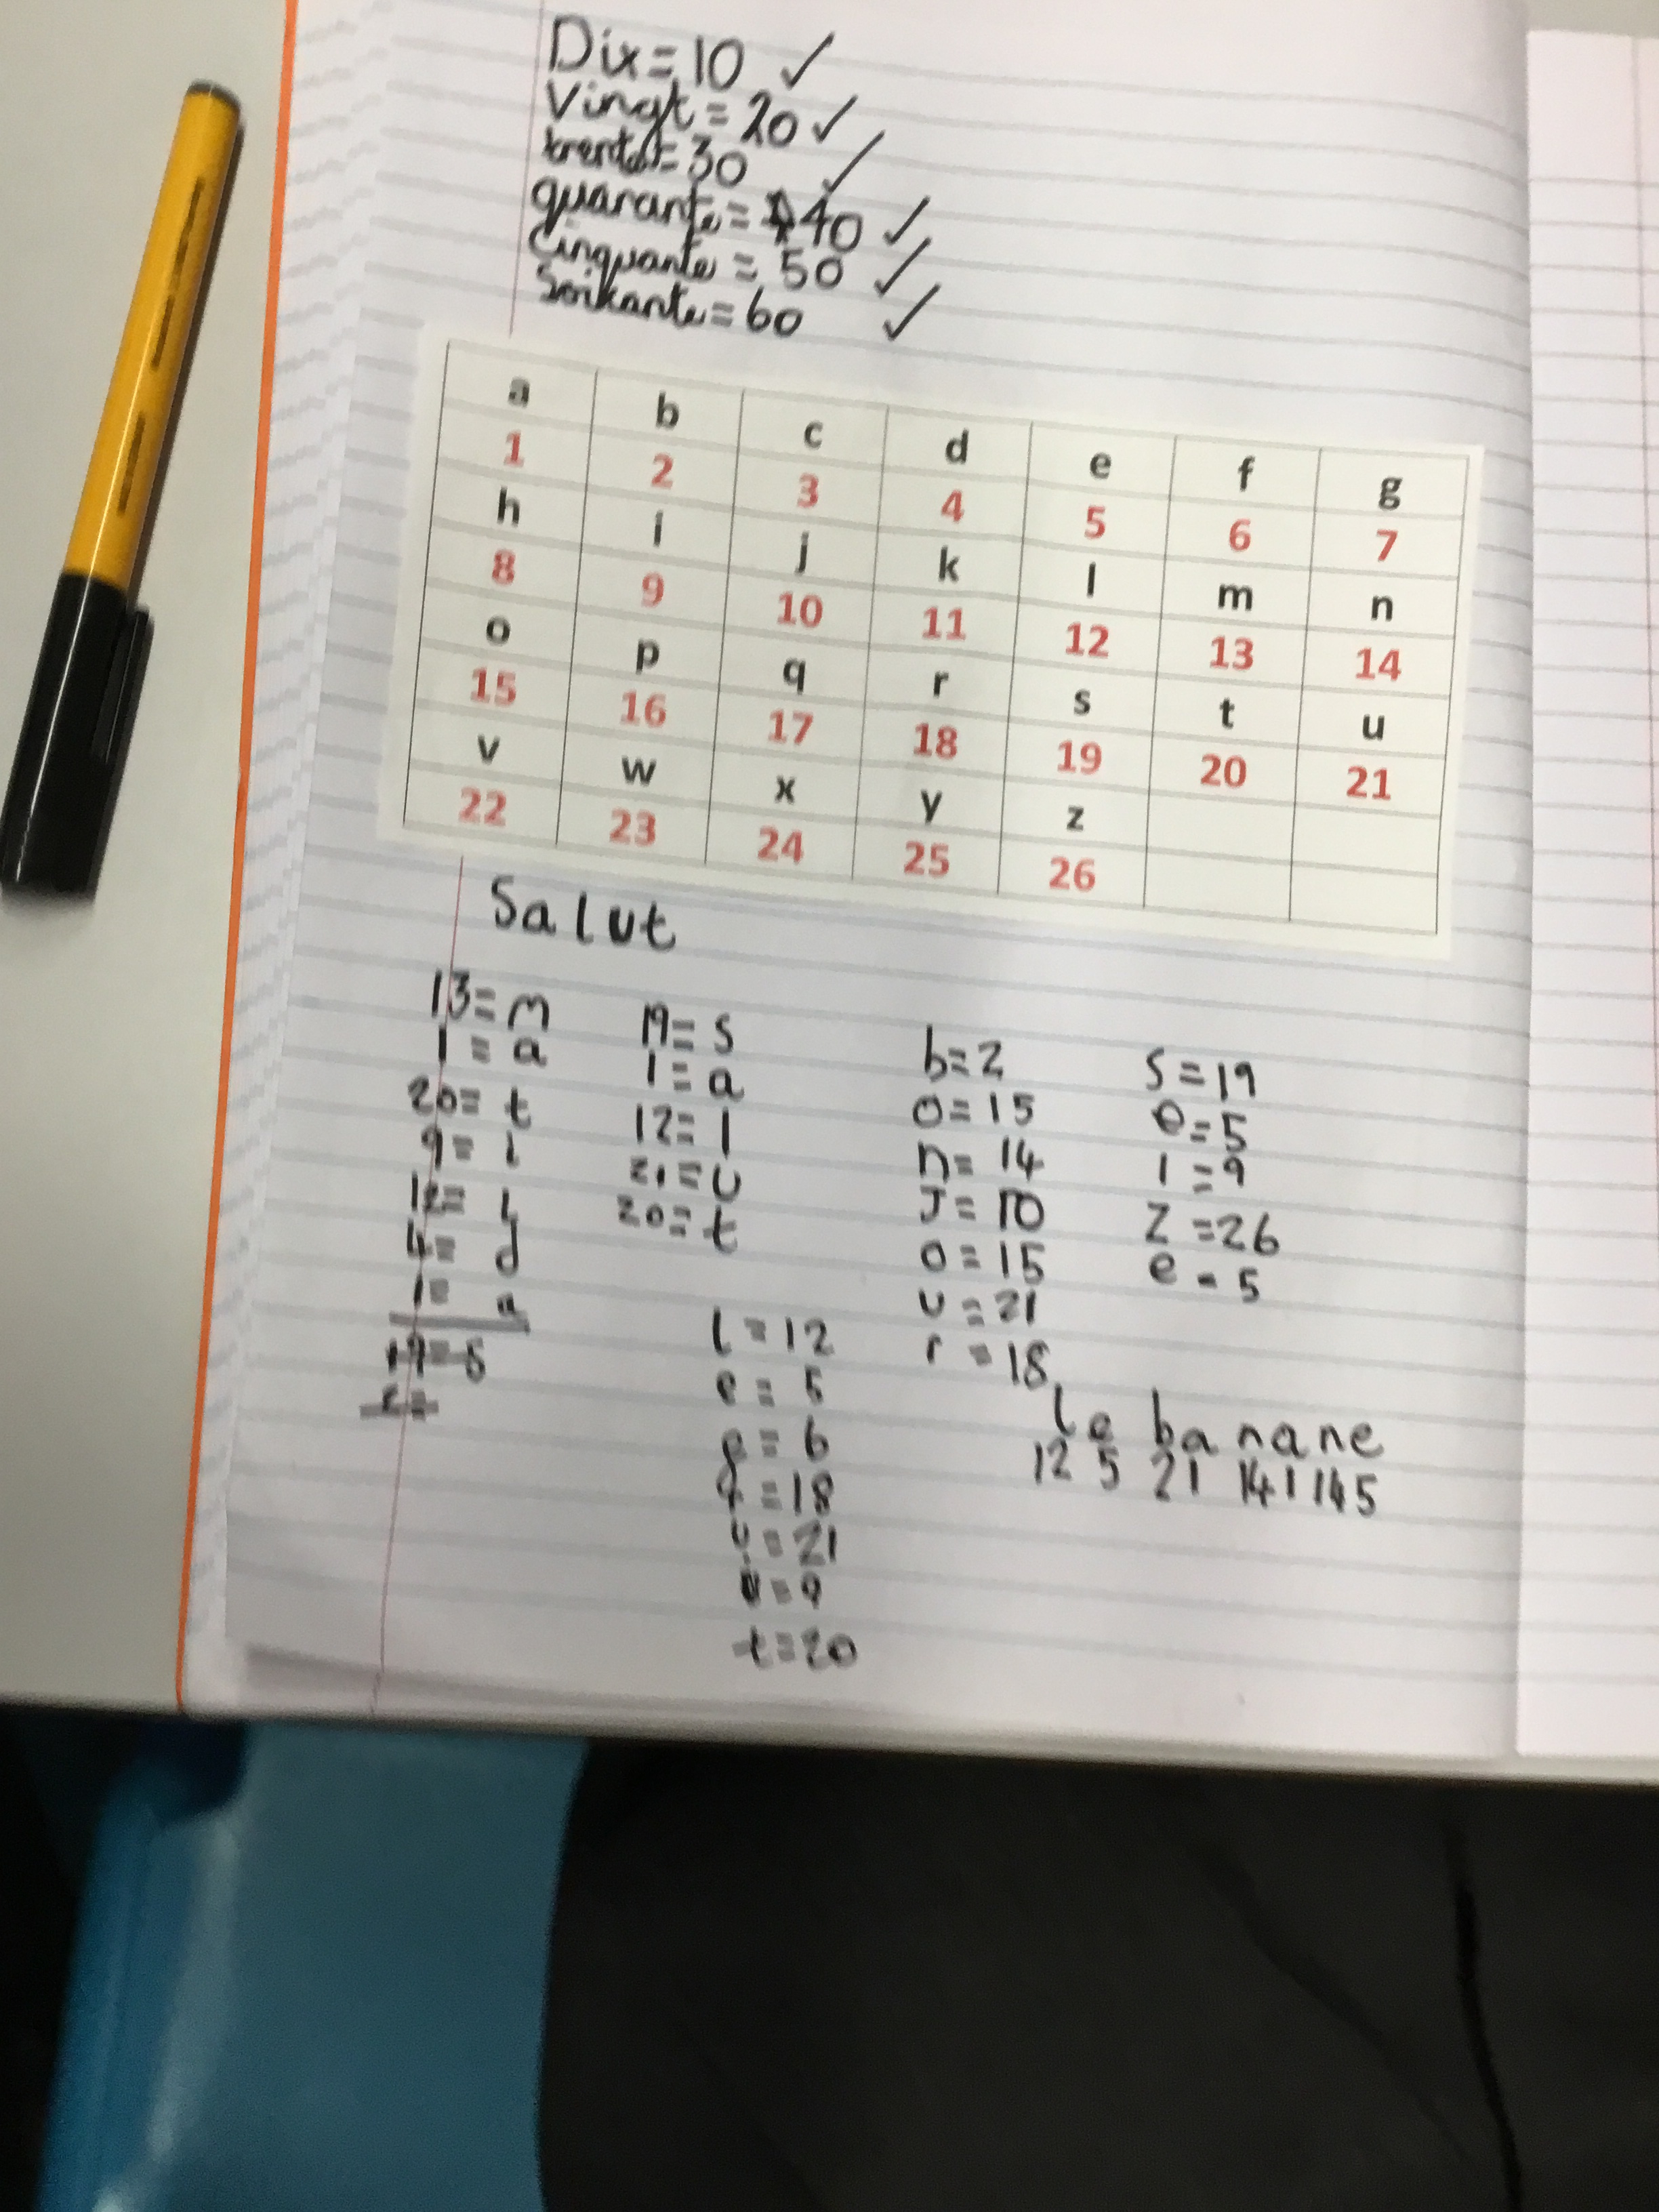 Dix = 10 ✓
Vingt = 20 ✓
trente = 30 ✓
quarante = 40 ✓
Cinquante = 50 ✓
Soixante = 60 ✓
a b c d e f g
1 2 3 4 5 6 7
h i j k l m n
8 9 10 11 12 13 14
o p q r s t u
15 16 17 18 19 20 21
v w x y z
22 23 24 25 26
Salut
13 = m
1 = a
20 = t
9 = i
12 = l
4 = d
1 = a
19 = s
19 = s
1 = a
12 = l
21 = U
20 = t
l = 12
e = 5
= 6
= 18
u = 21
= 9
t = 20
b = 2
o = 15
n = 14
J = 10
o = 15
u = 21
r = 18
S = 19
e = 5
1 = 9
Z = 26
e = 5
le banane
12 5 21 141145